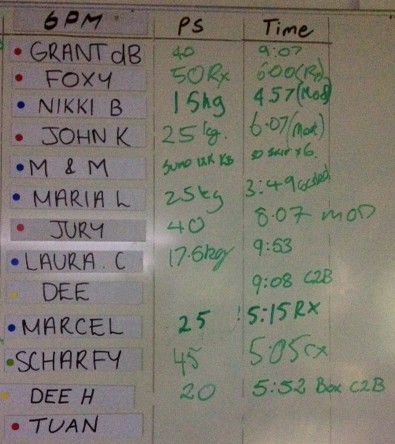 6PM PS Time
GRANT dB 40 9:07
FOXY 50Rx 6:00 (Rx)
NIKKI B 15kg 457 (Mod)
JOHN K 25kg. 6.07 (Mod)
M & M SUMO 12K KB 50 SKIP x 6
MARIA L 25kg 3:49
JURY 40 8.07 MOD
LAURA. C 17.5kg 9:53
DEE 9:08 C2B
MARCEL 25 5:15 RX
SCHARFY 45 5:05 rx
DEE H 20 5:52 Box C2B
TUAN